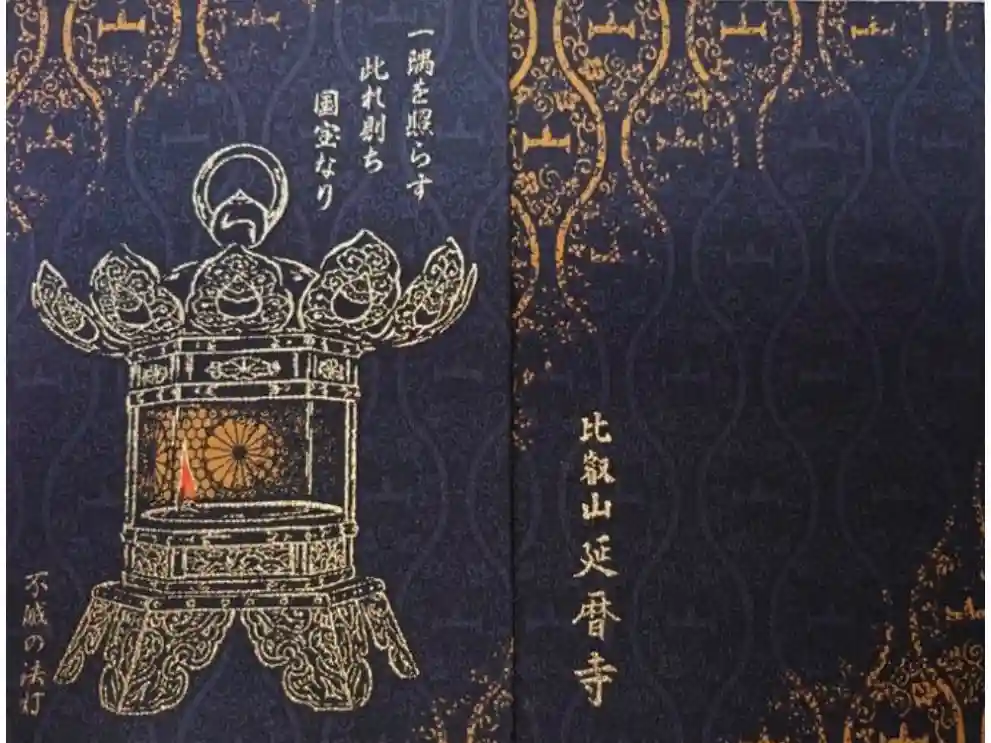 一隅を照らす
此れ則ち
国宝なり
不滅の法灯
比叡山延暦寺